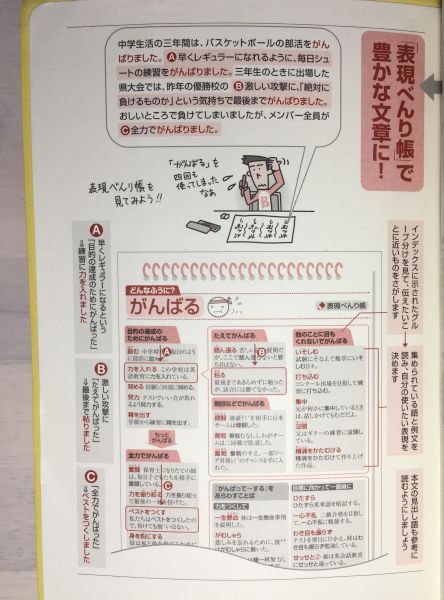 「表現べんり帳」で
豊かな文章に!
中学生活の三年間は、バスケットボールの部活をがん
ばりました。Ⓐ早くレギュラーになれるように、毎日シュ
ートの練習をがんばりました。三年生のときに出場した
県大会では、昨年の優勝校の Ⓑ激しい攻撃に、「絶対に
負けるものか」という気持ちで最後までがんばりました。
おしいところで負けてしまいましたが、メンバー全員が
Ⓒ全力でがんばりました。
「がんばる」を
四回も
使ってしまった
なぁ
表現べんり帳を
見てみよう!!
インデックスに示されたグル
ープ分けを見て、伝えたいこ
とに近いものをさがします
集められている語と例文を
読み、自分の使いたい表現を
決めます
本文の見出し語も参考に
読むようにしましょう
Ⓐ
早くレギュラーになるという
「目的の達成のためにがんばった」
⇒練習に力を入れました
Ⓑ
激しい攻撃に
「たえてがんばった」
⇒最後まで粘りました
Ⓒ
「全力でがんばった」
⇒ベストをつくしました
どんなふうに?
がんばる
表現べんり帳
目的の達成の
ためにがんばる
力を入れる この学校は英
語教育に力を入れている。
努める 目標に努める。
努力 テストでいい点が取
れるよう努力する。
精を出す
早朝から練習に精を出す。
もっと
がんばる
全力でがんばる
力を振り絞る 力を振り絞っ
て最後の一歩を投げた。
ベストをつくす
私たちはベストをつくしたので、
負けても悔いはない。
身を粉にする
たえてがんばる
粘る
最後まであきらめずに粘った
が、試合には勝てなかった。
他のことに目も
くれないでがんばる
いそしむ
試験にそなえて勉学にいそ
しむ日々。
打ち込む
コンクール出場を目指して練
習に打ち込む。
集中
兄が何かに集中しているとき
は、話しかけてもむだだよ。
没頭
父はギターの練習に没頭して
いる。
精魂をかたむける
精魂をかたむけて作り上げ
た作品。
「がんばって~する」を
あらわすことば
力をつくして
一生懸命
がむしゃら
ひたすら
ひたすら英単語を暗記する。
一心不乱
わき目も振らず
せっせと